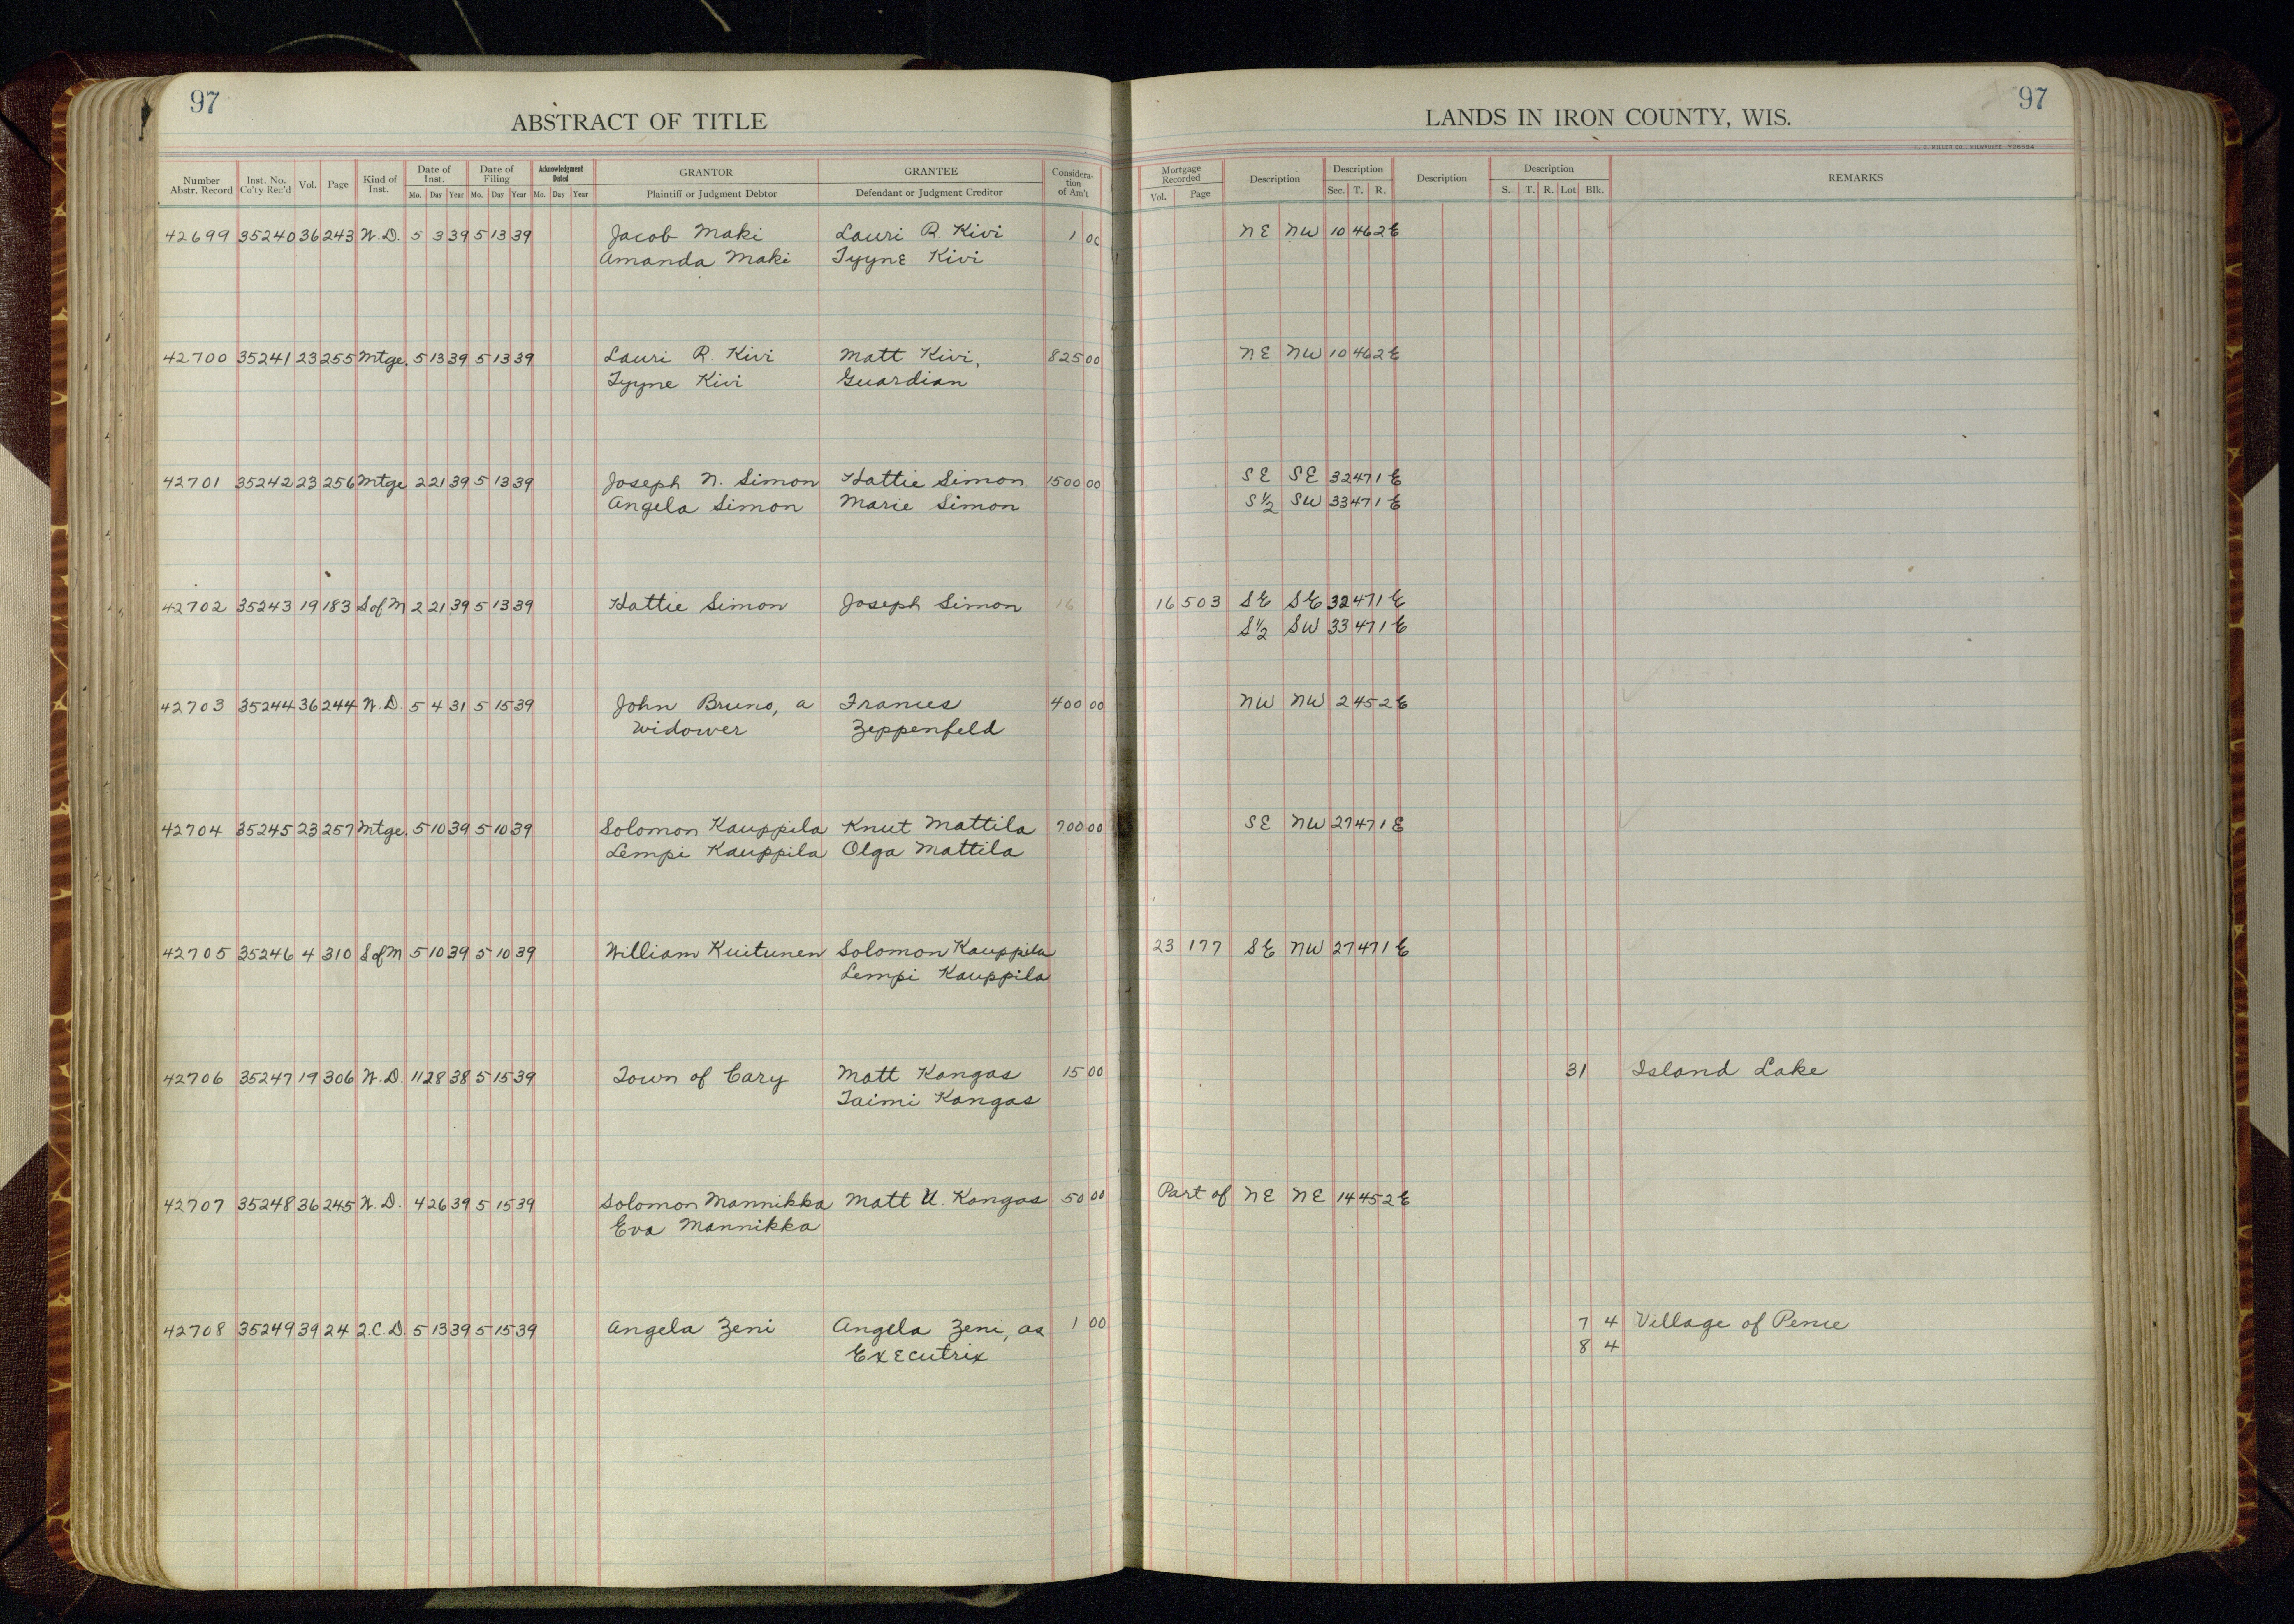 97
ABSTRACT OF TITLE
Number Abstr. Record Inst. No. Co'ty Rec'd Vol. Page Kind of Inst. Date of Inst. Mo. Day Year Date of Filing Mo. Day Year Acknowledgment Dated Mo. Day Year GRANTOR Plaintiff or Judgment Debtor GRANTEE Defendant or Judgment Creditor Considera-tion of Am't
42699 35240 36 243 W.D. 5 3 39 5 13 39 Jacob Maki Lauri R. Kivi 1 00
Amanda Maki Tyyne Kivi
42700 35241 23 255 Mtge. 5 13 39 5 13 39 Lauri R. Kivi Matt Kivi, 825 00
Tyyne Kivi Guardian
42701 35242 23 256 Mtge 2 21 39 5 13 39 Joseph N. Simon Hattie Simon 1500 00
Angela Simon Marie Simon
42702 35243 19 183 S of M 2 21 39 5 13 39 Hattie Simon Joseph Simon 16
42703 35244 36 244 W.D. 5 4 31 5 15 39 John Bruno, a Frances 400 00
Widower Zeppenfeld
42704 35245 23 257 Mtge. 5 10 39 5 10 39 Solomon Kauppila Knut Mattila 700 00
Lempi Kauppila Olga Mattila
42705 35246 4 310 S of M 5 10 39 5 10 39 William Kuitunen Solomon Kauppila
Lempi Kauppila
42706 35247 19 306 W.D. 11 28 38 5 15 39 Town of Cary Matt Kangas 15 00
Taimi Kangas
42707 35248 36 245 W.D. 4 26 39 5 15 39 Solomon Mannikka Matt U. Kangas 50 00
Eva Mannikka
42708 35249 39 24 2.C.D. 5 13 39 5 15 39 Angela Zeni Angela Zeni, as 1 00
Executrix
97
LANDS IN IRON COUNTY, WIS.
H. C. MILLER CO., MILWAUKEE
Mortgage Recorded Vol. Page Description Description Sec. T. R. Description Description S. T. R. Lot Blk. REMARKS
NE NW 10 46 2E
NE NW 10 46 2E
SE SE 32 47 1E
S½ SW 33 47 1E
16 503 SE SE 32 47 1E
S½ SW 33 47 1E
NW NW 2 45 2E
SE NW 27 47 1E
23 177 SE NW 27 47 1E
31 Island Lake
Part of NE NE 14 45 2E
7 4 Village of Pence
8 4